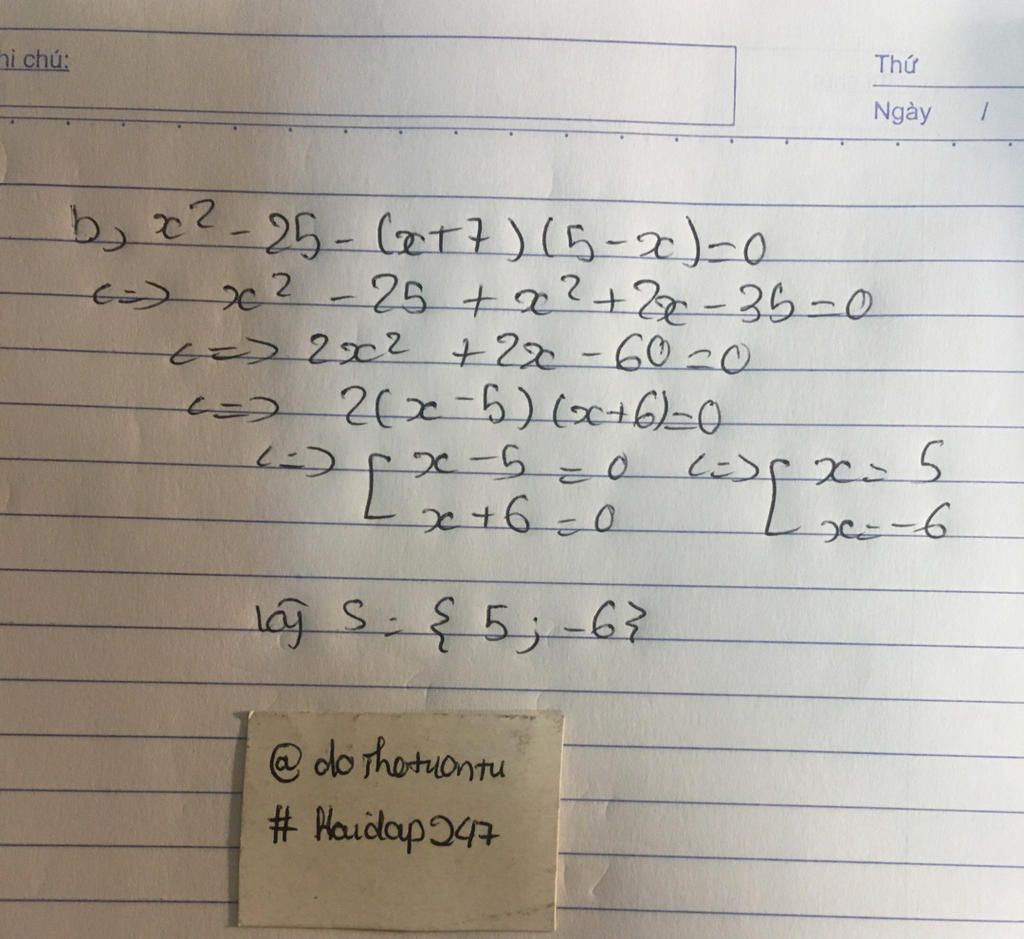 hi chú:
Thứ
Ngày /
b, x² - 25 - (x+7)(5-x)=0
<=> x² - 25 + x² + 2x - 35 = 0
<=> 2x² + 2x - 60 = 0
<=> 2(x-5)(x+6)=0
<=> [ x - 5 = 0 <=> [ x = 5
x + 6 = 0 x = -6
Vậy S = { 5 ; -6}
@ dothotuantu
# Hoidap247